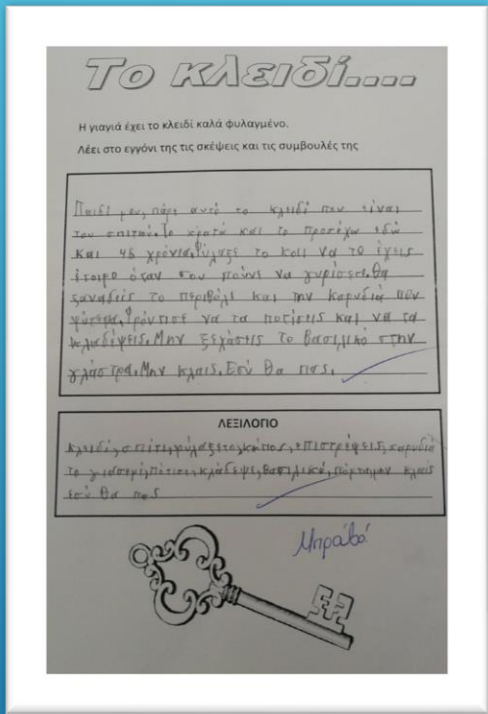 Το κλειδί....
Η γιαγιά έχει το κλειδί καλά φυλαγμένο.
Λέει στο εγγόνι της τις σκέψεις και τις συμβουλές της
Παιδί μου, πάρε αυτό το κλειδί που είναι
του σπιτιού. Το κρατώ και το προσέχω εδώ
και 45 χρόνια. Φύλαξε το και να το έχεις
έτοιμο όταν σου πούνε να γυρίσεις. Θα
ξαναδείς το περιβόλι και την καρυδιά που
φύτεψα. Φρόντισε να τα ποτίσεις και να τα
κλαδέψεις. Μην ξεχάσεις το βασιλικό στην
γλάστρα. Μην κλαις. Εσύ θα πας.
ΛΕΞΙΛΟΓΙΟ
κλειδί, σπίτι, φύλαξε το, κήπος, επιστρέψεις, καρυδιά
το γιασεμί, πότισε, κλάδεψε, βασιλικό, μην κλαις
εσύ θα πας
Μπράβο